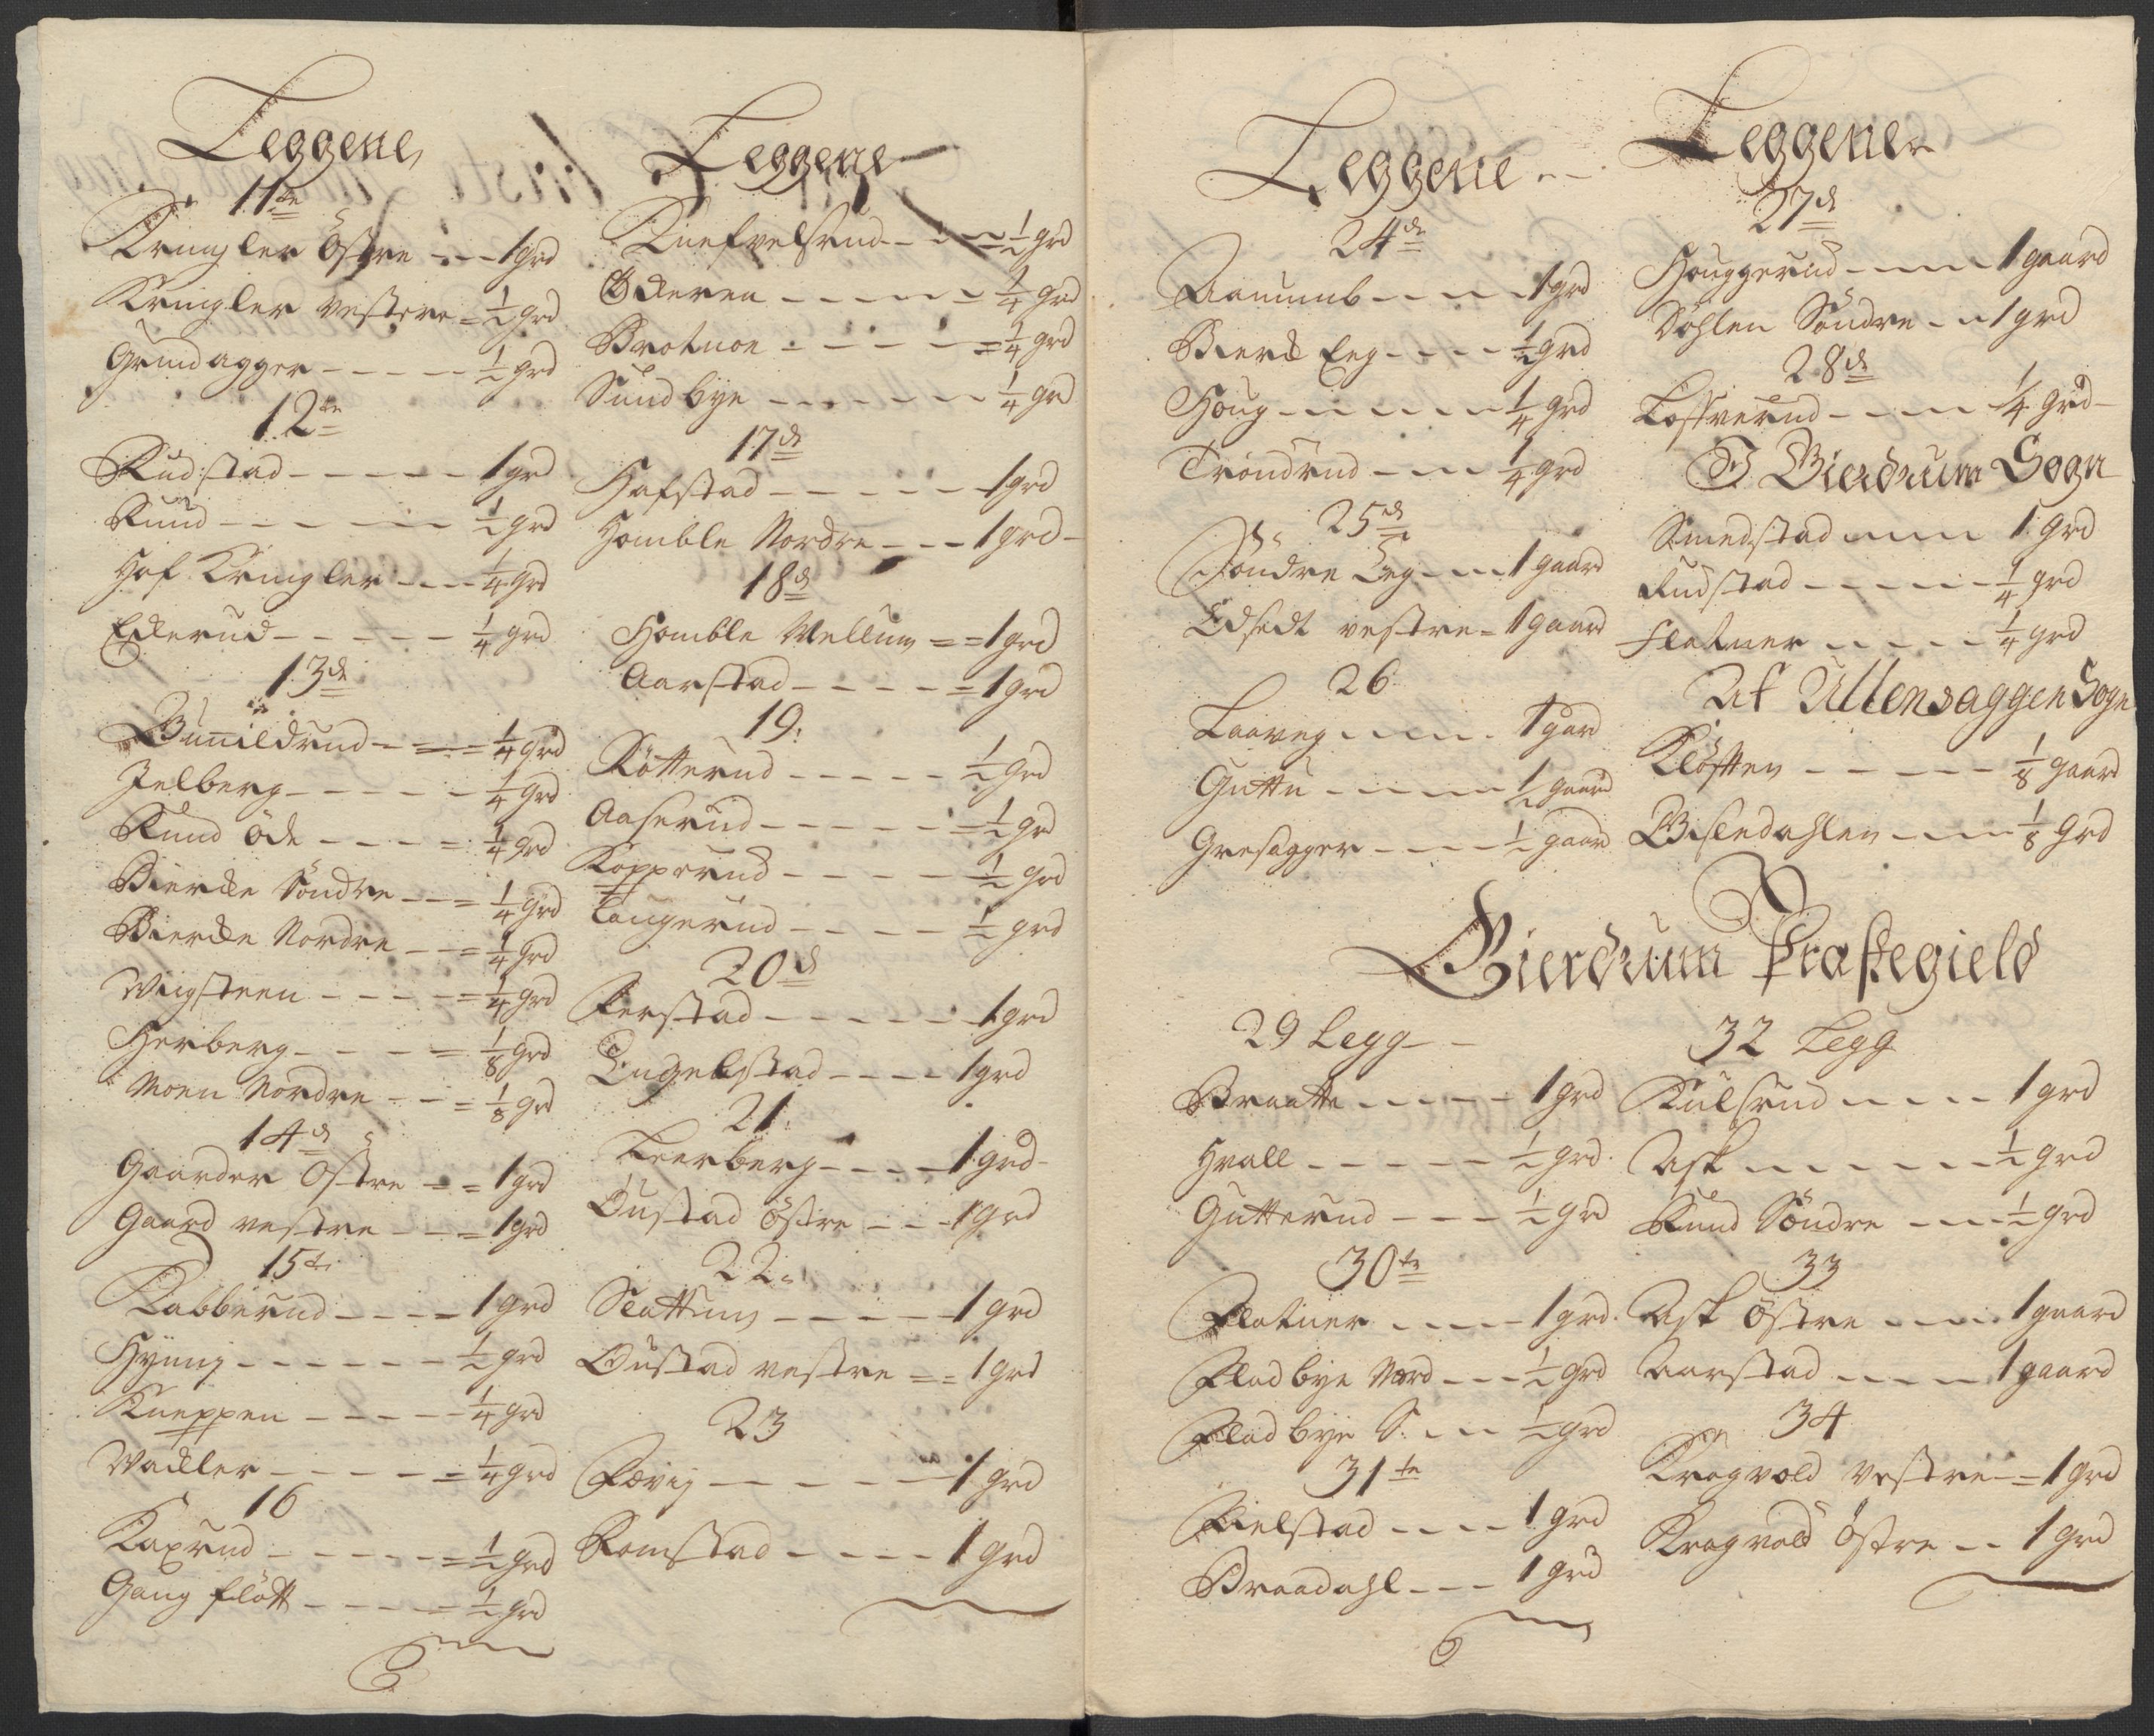 Leggene
11te
Kringler Östre - - - 1 grd
Kringler vestere = ½ grd
Grindagger - - - - - ½ grd
12te
Rudstad - - - - - 1 grd
Ruud - - - - - ½ grd
Hof Kringler - - - ¼ grd
Ekerud - - - - - ¼ grd
13de
Gunildrud - - - = ¼ grd
Jelberg - - - - - ¼ grd
Ruud öde - - - = ¼ grd
Bierke Söndre - - = ¼ grd
Bierke Nordre - - = ¼ grd
Wigsteen - - - - = ¼ grd
Herberg - - - - = ⅛ grd
Moen Nordre - - = ⅛ grd
14d
Gaarder Östre - = 1 grd
Gaard vestre - - = 1 grd
15de
Rabberud - - - - 1 grd
Hyning - - - - - - ½ grd
Kneppen - - - - - ¼ grd
Wakler - - - - - = ¼ grd
16
Kaxrud - - - - - = ½ grd
Gang flött - - - - = ½ grd
Leggene
Knefvelsrud - - = ½ grd
Ekeren - - - - - = ¼ grd
Brotnoe - - - - - = ¼ grd
Sundbye - - - - - - ¼ grd
17d
Hafstad - - - - - - 1 grd
Homble Nordre - - - 1 grd -
18d
Homble Mellum = = 1 grd
Aarstad - - - - - = 1 grd
19.
Kötterud - - - - - ½ grd
Aaserud - - - - - = ½ grd
Kopperud - - - - - ½ grd
Taugerud - - - - ½ grd
20d
Ferstad - - - - - - 1 grd
Engelstad - - - - 1 grd
21.
Leerberg - - - - 1 grd -
Oustad östre - - - 1 grd
22.
Slattum - - - - - 1 grd
Oustad vestre = = 1 grd
23
Fævig - - - - - - 1 grd
Romstad - - - - - 1 grd
Leggene - -
24de
Aanumb - - - - 1 grd
Bierk Eng - - - - ½ grd
Houg - - - - - ¼ grd
Trondrud - - - ¼ grd
25d
Söndre Eeg - - - 1 gaard
Edsedt vestre = 1 gaard
26
Laaveg - - - - 1 gard
Guttu - - - - - ½ gaard
Gresagger - - - - ½ gaard
Leggene
27d
Houggerud - - - - 1 gaard
Döhlen Söndre - - 1 grd
28de
Lossverud - - - - ¼ grd -
I Gierdrum Sogn
Smedstad - - - - 1 grd
Rudstad - - - - - ¼ grd
Flatner - - - - ¼ grd
Af Ullensaggen Sogn
Klöften - - - - - ⅛ gaard
Gislendahlen - - - - ⅛ grd
Gierdrum Præstegield
29 Legg - -
Braatte - - - - - 1 grd
Hvall - - - - - ½ grd.
Gutterud - - - ½ grd
30te
Flatner - - - - 1 grd.
Fladbye Nord - - - ½ grd
Fladbye S. - - ½ grd
31te
Fielstad - - - - 1 grd
Braadahl - - - 1 grd
32 Legg
Kulsrud - - - - 1 grd
Ask - - - - - - ½ grd
Ruud Söndre - - - ½ grd
33
Ask östre - - - - 1 gaard
Aarstad - - - - 1 gaard
34
Krogvold vestre - = 1 grd
Krogvold östre - - 1 grd